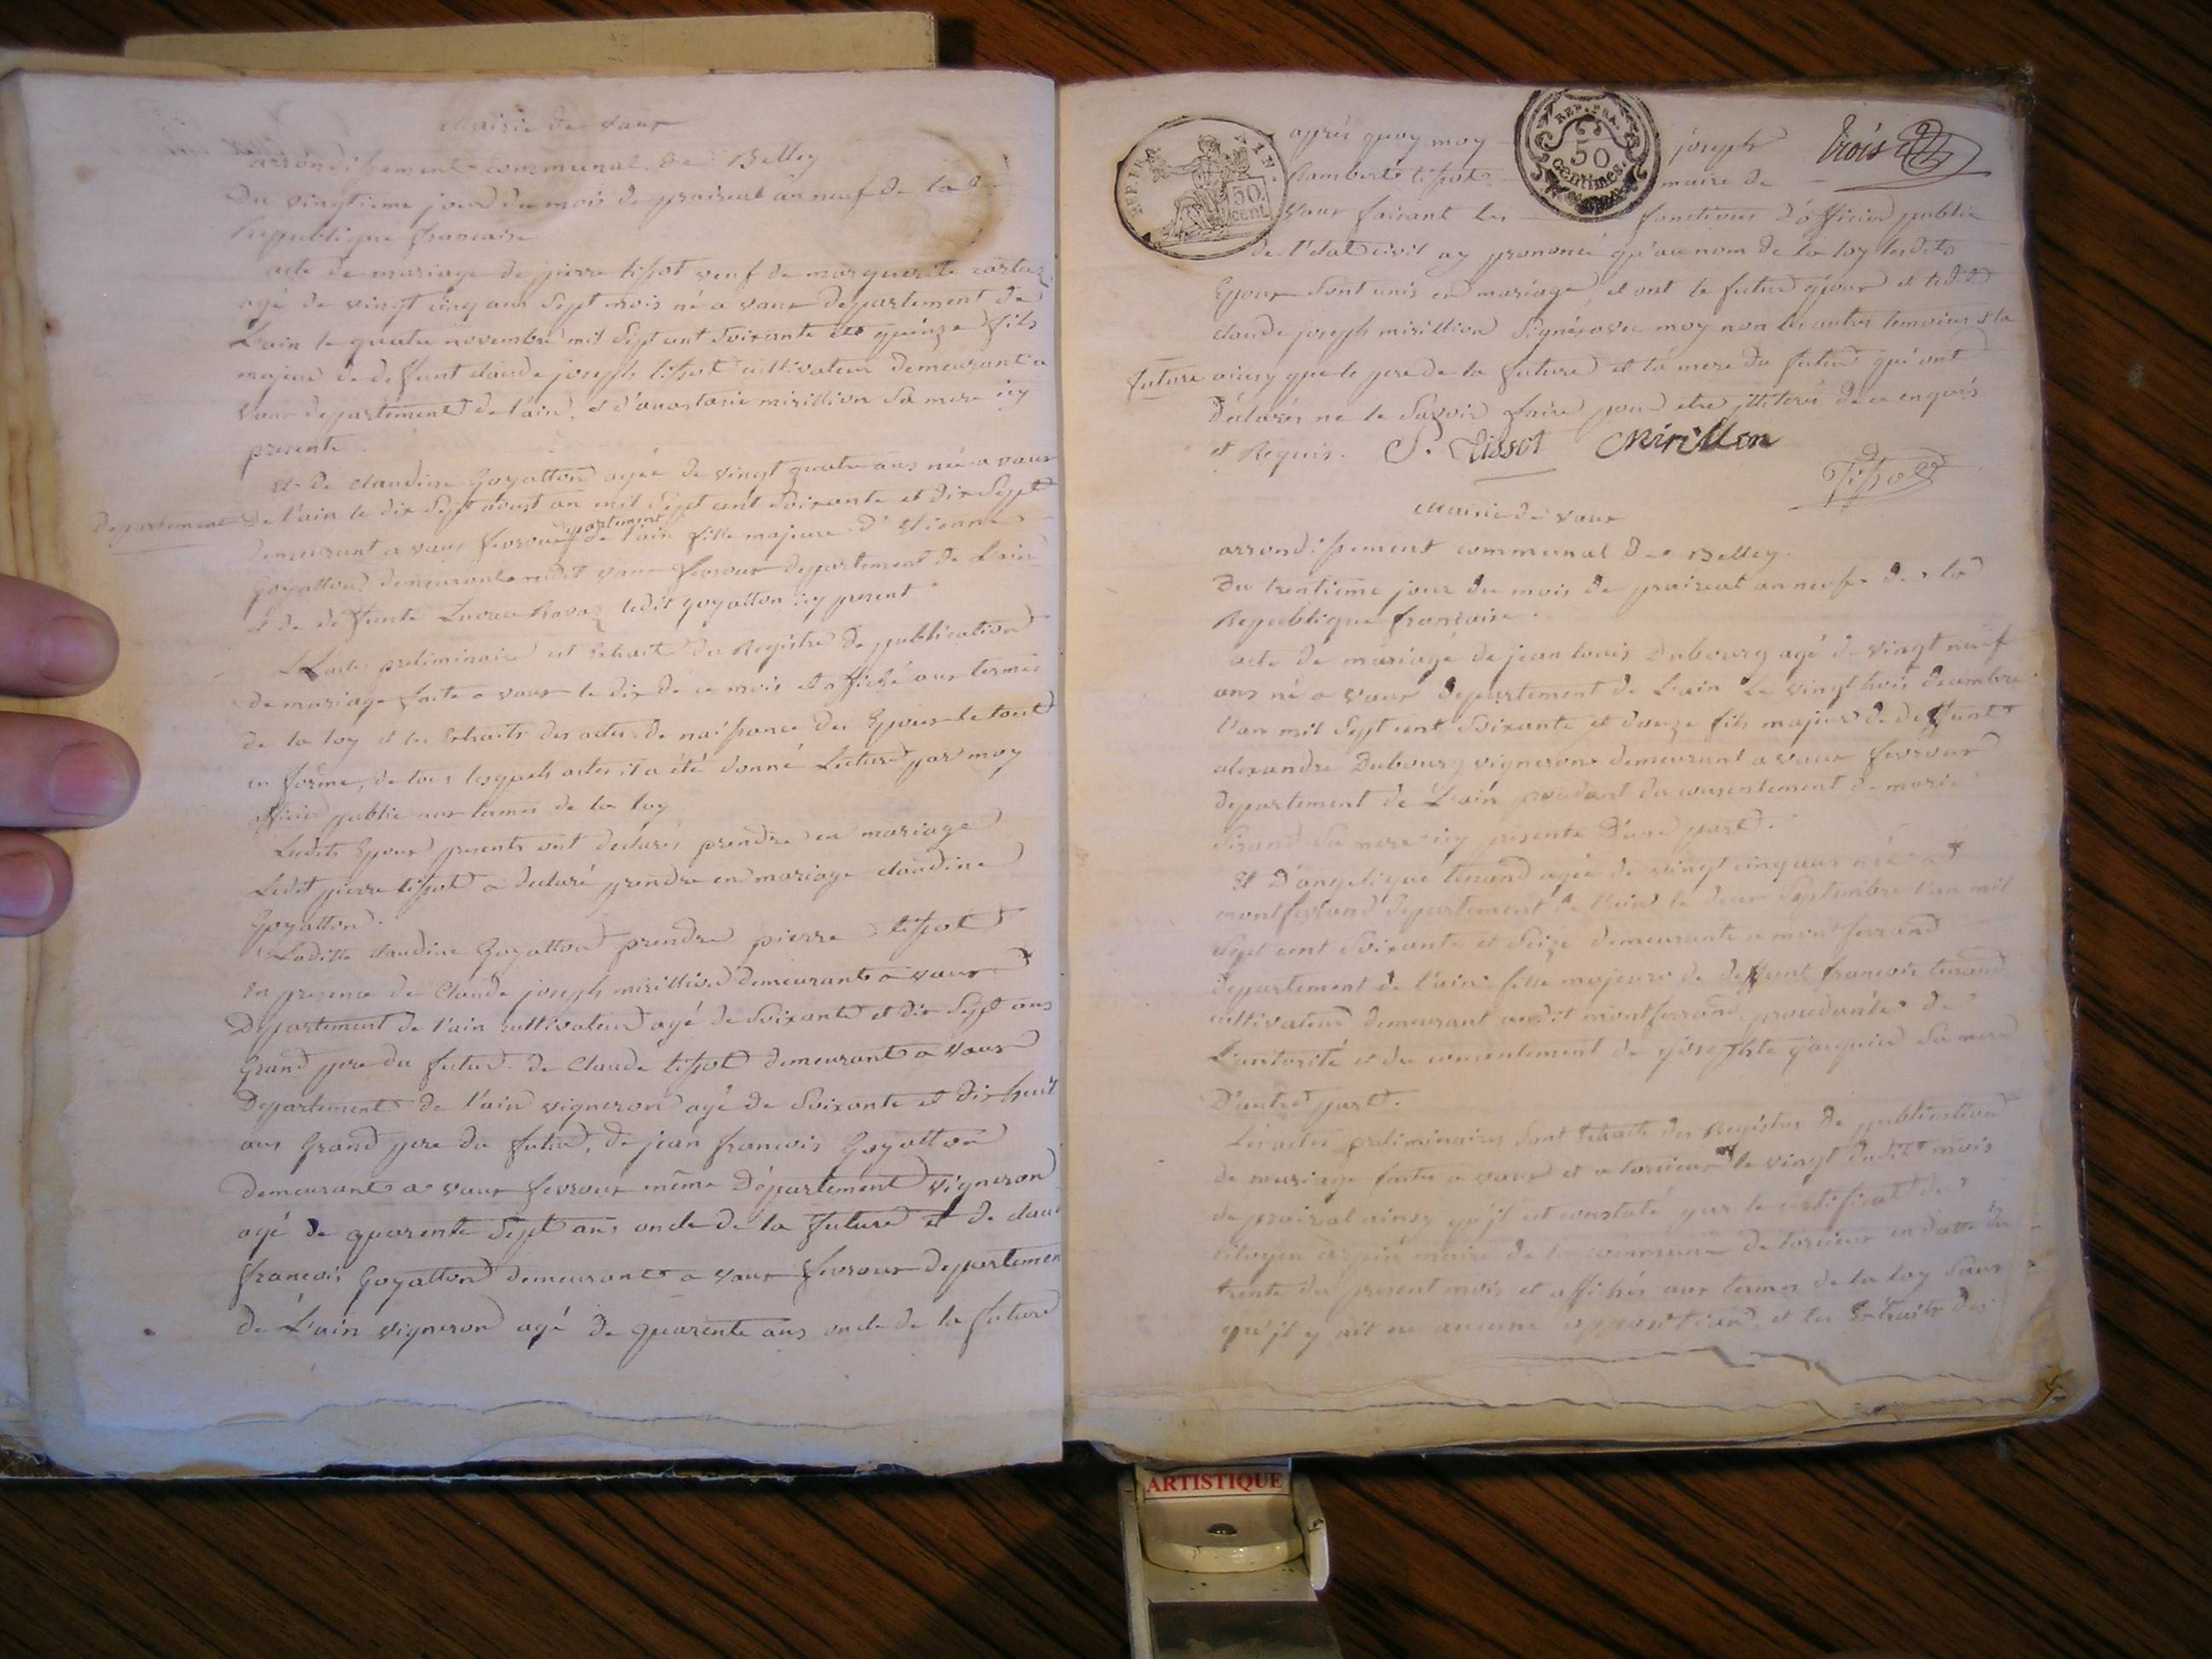 Mairie de vaux
arrondissement communal de Belley
Du vingtieme jour du mois de prairéal an neuf de la
Republique francaise
acte de mariage de pierre tissot veuf de marguerite cartaz
agé de vingt cinq ans sept mois né a vaux departement de
L'ain le quatre novembre mil sept cent soixante et quinze fils
majeur de deffunt claude joseph tissot cultivateur demeurant a
vaux departement de l'ain, et d'anastasie mirillion sa mere icy
presente
Et de claudine Goyatton agée de vingt quatre ans née a vaux
departement de l'ain le dix sept aoust an mil sept cent soixante et dix sept
demeurant a vaux fevroux departement de l'ain fille majeure d'Etienne
Goyatton demeurant audit vaux fevroux departement de Lain
et de deffunte Ravaz ledit goyatton icy present
L'actes preliminaire est Extrait du Registre de publication
de mariage faite a vaux le dix de ce mois et affiché aux termes
de la loy et les Extraits des actes de naissance des Epoux le tout
en forme, de tous lesquels actes il a été donné Lecture par moy
officier public aux termes de la loy
Lesdits Epoux presents ont declarés prendre en mariage
Ledit pierre tissot a declaré prendre en mariage claudine
Goyatton.
Laditte claudine Goyatton prendre pierre tissot
En presence de Claude joseph mirillion demeurant a vaux
Departement de l'ain cultivateur agé de soixante et dix sept ans
Grand pere du futur. de Claude tissot demeurant a vaux
Departement de l'ain vigneron agé de soixante et dix huit
ans Grand pere du futur, de jean francois Goyatton
demeurant a vaux fevroux même Département vigneron
agé de quarente sept ans oncle de la future et de clau
francois Goyatton demeurant a vaux fevroux departemen
de L'ain vigneron agé de quarente ans oncle de la future
REP. FRA.
50 cent
REP. FRA.
50
centimes.
trois
après quoy moy joseph
Rambert tissot maire de
vaux faisant les fonctions d'officier public
de l'etat civil ay prononcé qu'au nom de la loy lesdits
Epoux sont unis en mariage, et ont le futur époux et ledit
claude joseph mirillion signés avec moy non les autres temoins et la
future ainsy que le pere de la future et la mere du futur qui ont
déclarés ne le savoir faire pour etre illiterés de ce enquis
et Requis. P. Tissot Mirillon
Tissot
Mairie de vaux
arrondissement communal de Belley.
Du trentieme jour du mois de prairéal an neuf de la
Republique francaise.
acte de mariage de jean louis Dubourg agé de vingt neuf
ans né a vaux departement de L'ain Le vingt trois decembre
l'an mil sept cent soixante et douze fils majeur de deffunt
alexandre Dubourg vigneron demeurant a vaux fevroux
departement de L'ain procedant du consentement de marie
sa mere icy presente D'une part.
Et D'angelique tenand agée de vingt cinq ans née a
montferrand departement de l'ain le deux septembre l'an mil
sept cent soixante et seize demeurante a montferrand
departement de l'ain fille majeure de deffunt francois tenand
cultivateur demeurant audit montferrand, procedante de
L'autorité et du consentement de sa mere
D'autre part.
Les actes preliminaires sont Extraits des Registres de publication
de mariage faites a vaux et a torcieux le vingt dudit mois
de prairéal ainsy qu'il est constaté par le certificat du
citoyen maire de la commune de torcieux en datte du
trente du present mois et affichés aux termes de la loy sans
qu'il y ait eu aucune opposition, et les Extraits des
ARTISTIQUE